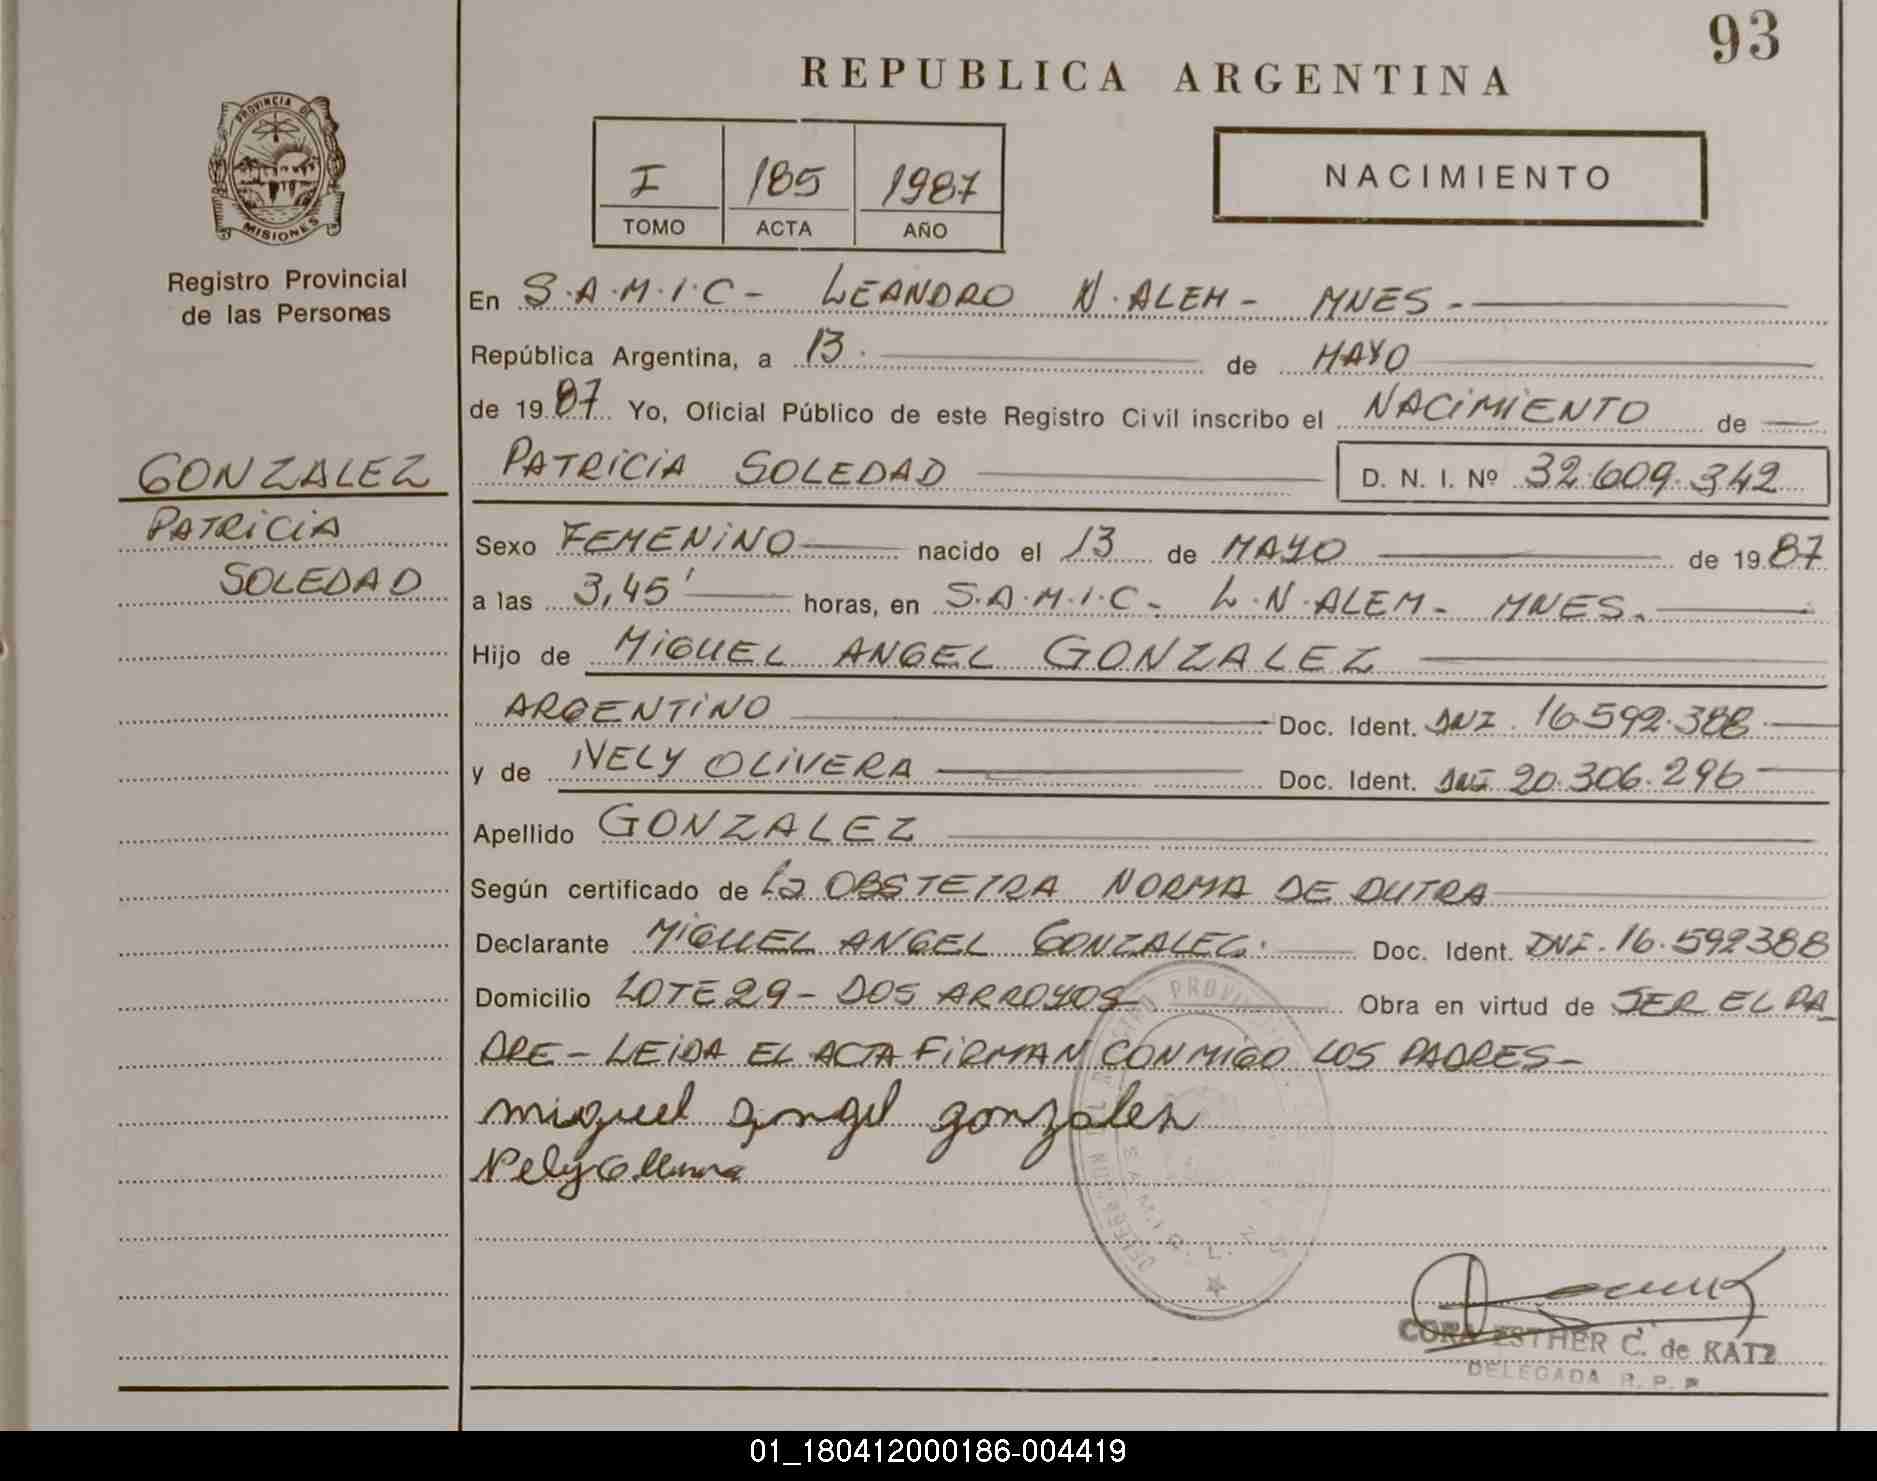 93
REPUBLICA ARGENTINA
PROVINCIA DE
MISIONES
Registro Provincial
de las Personas
I 185 1987
TOMO ACTA AÑO
NACIMIENTO
En S.A.M.I.C - LEANDRO N. ALEM - MNES -
República Argentina, a 13. de MAYO
de 19 87 Yo, Oficial Público de este Registro Civil inscribo el NACIMIENTO de
GONZALEZ
PATRICIA
SOLEDAD
PATRICIA SOLEDAD D. N. I. Nº 32.609.342
Sexo FEMENINO nacido el 13 de MAYO de 19 87
a las 3,45' horas, en S.A.M.I.C - L.N. ALEM - MNES.
Hijo de MIGUEL ANGEL GONZALEZ
ARGENTINO Doc. Ident. DNI. 16.592.388
y de NELY OLIVERA Doc. Ident. DNI 20.306.296
Apellido GONZALEZ
Según certificado de La OBSTETRA NORMA DE DUTRA
Declarante MIGUEL ANGEL GONZALEZ. Doc. Ident. DNI. 16.592388
Domicilio LOTE 29 - DOS ARROYOS Obra en virtud de SER EL PA
DRE - LEIDA EL ACTA FIRMAN CONMIGO LOS PADRES -
miguel angel gonzalez
Nely Olivera
CORA ESTHER C. de KATZ
DELEGADA R. P. P.
01_180412000186-004419